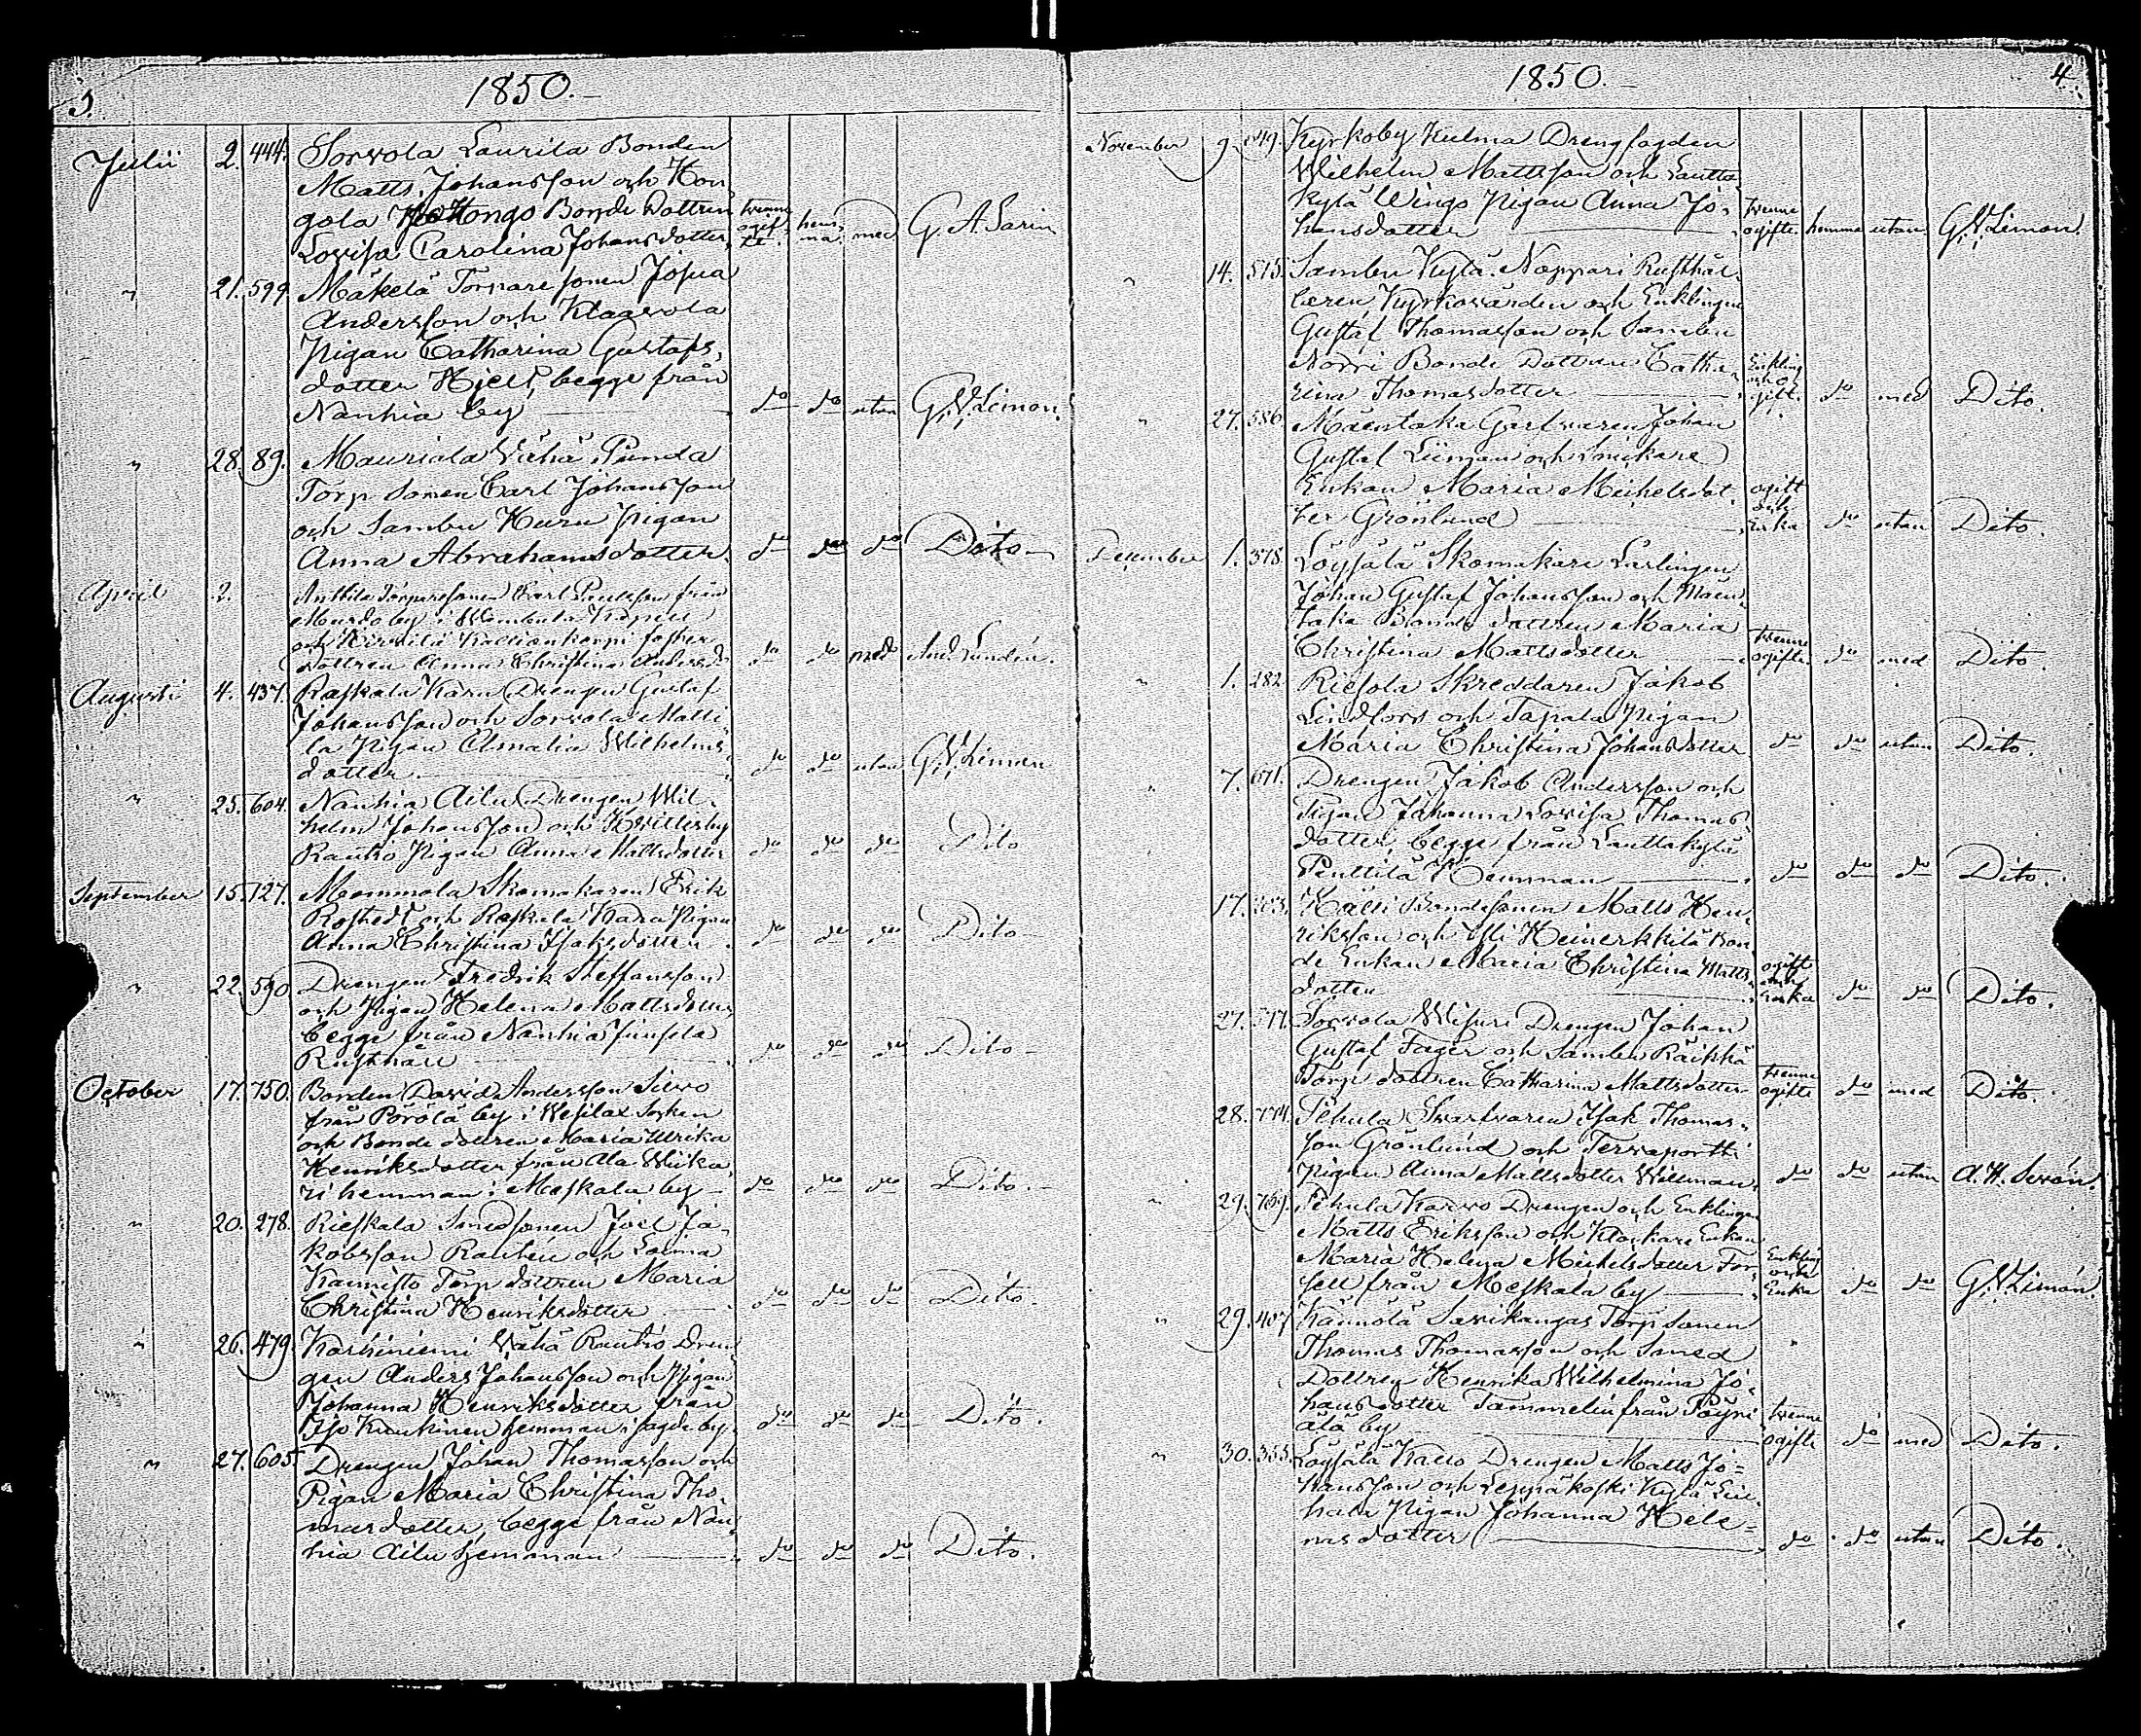 3.
1850.
Julii 2. 444. Sorvola Laurila Bonden
Matts Johansson och Kon-
gola Bonde Dottren tvenne
Lovisa Carolina Johansdotter ogifte hemma med G. A. Sarin
" 21. 599. Mäkelä Torpare sonen Josua
Andersson och Klaavola
Pigan Catharina Gustafs-
dotter Hjelt, begge från
Nanhia by do do utan G. V. Limon.
" 28. 89. Mauriala Vähä Punda
Torp sonen Carl Johansson
och Sambu Kuru Pigan
Anna Abrahamsdotter. do do do Dito
April 2. Anttila Torparesonen Carl Paulsson från
by i Kapell
och
dottren Anna Christina Andersdr do do med And. Lindén.
Augusti 4. 437. Raskala Karu Drengen Gustaf
Johansson och Sorvola Matti-
la Pigan Amalia Wilhelms-
dotter do do utan G. V. Limón
" 25. 604. Nanhia Ailu Drengen Wil-
helm Johansson och Kvittesby
Rautio Pigan Anna Mattsdotter do do do Dito
September 15. 127. Mommola Skomakaren Erik
Rostedt och Raskala Karu Pigan
Anna Christina Isaksdotter do do do Dito
" 22. 590. Drengen Fredrik Steffansson
och Pigan Helena Mattsdotter
begge från Nanhia
Rusthåll do do do Dito
October 17. 750. Bonden David Andersson Sievo
från Pörölä by i Wesilax Socken
och Bonde dottren Maria Ulrika
Henriksdotter från Ala Wiika-
ri hemman i Meskala by do do do Dito.
" 20. 278. Rieskala Smedsonen Joel Ja-
kobsson Rautén och Loima
Kannisto Torp dottren Maria
Christina Henriksdotter do do do Dito.
" 26. 479. Karhiniemi Vähä Rautio Dren-
gen Anders Johansson och Pigan
Johanna Henriksdotter från
Iso Kiukinen hemman i sagde by. do do do Dito.
" 27. 605. Drengen Johan Thomasson och
Pigan Maria Christina Tho-
masdotter, begge från Nan-
hia Ailu hemman do do do Dito.
1850.
4.
November 9. 149. Kyrkoby Kulma Drengfogden
Wilhelm Mattsson och Lautta-
kylä Wingo Pigan Anna Jo- tvenne
hansdotter ogifte. hemma utan G. V. Limon.
" 14. 515. Sambu Kylä Noppari Rusthål-
laren, Kyrkovärden och Enklingen
Gustaf Thomasson och Sambu
Norri Bonde Dottren Catha- Enkling och o-
rina Thomasdotter gift. do med Dito.
" 27. 586. Mäentaka Garfvaren Johan
Gustaf Liiman och Snickare
Enkan Maria Michelsdot- ogift
ter Grönlund och Enka do utan Dito.
December 1. 378. Löysälä Skomakare Lärlingen
Johan Gustaf Johansson och Mäen-
taka Bonde dottren Maria
Christina Mattsdotter tvenne ogifte. do med Dito.
" 1. 282. Riesola Skreddaren Jakob
Lindfors och Tapala Pigan
Maria Christina Johansdotter do do utan Dito.
" 7. 671. Drengen Jakob Andersson och
Pigan Johanna Lovisa Thomas-
dotter, begge från Lauttakylä
Penttilä Hemman do do do Dito.
17. 203. Källi Bondesonen Matts Hen-
riksson och Heinerkkilä Bon-
de Enkan Maria Christina Matts- ogift och
dotter Enka do do Dito.
27. Sorvola Wisuri Drengen Johan
Gustaf Fager och Sambu Räikkä
Torp dottren Catharina Mattsdotter tvenne ogifte do med Dito.
28. 774. Sehula Svarfvaren Isak Thomas-
son Grönlund och
Pigan Anna Mattsdotter Willman. do do utan A. H. Serón.
" 29. 769. Sehula Karvo Drengen och Enklingen
Matts Eriksson och Klockare Enkan
Maria Helena Michelsdotter For- Enkling och
sell från Meskala by Enka do do G. V. Limón.
" 29. 407. Kännölä Savikangas Torp sonen
Thomas Thomasson och Smed
Dottren Henrika Wilhelmina Jo-
hansdotter Tammelin från Pöyri- tvenne
älä by ogifte do med Dito.
" 30. 355. Löysälä Kallo Drengen Matts Jo-
hansson och Leppäkoski Kylä
Pigan Johanna Hele-
nasdotter do do utan Dito.